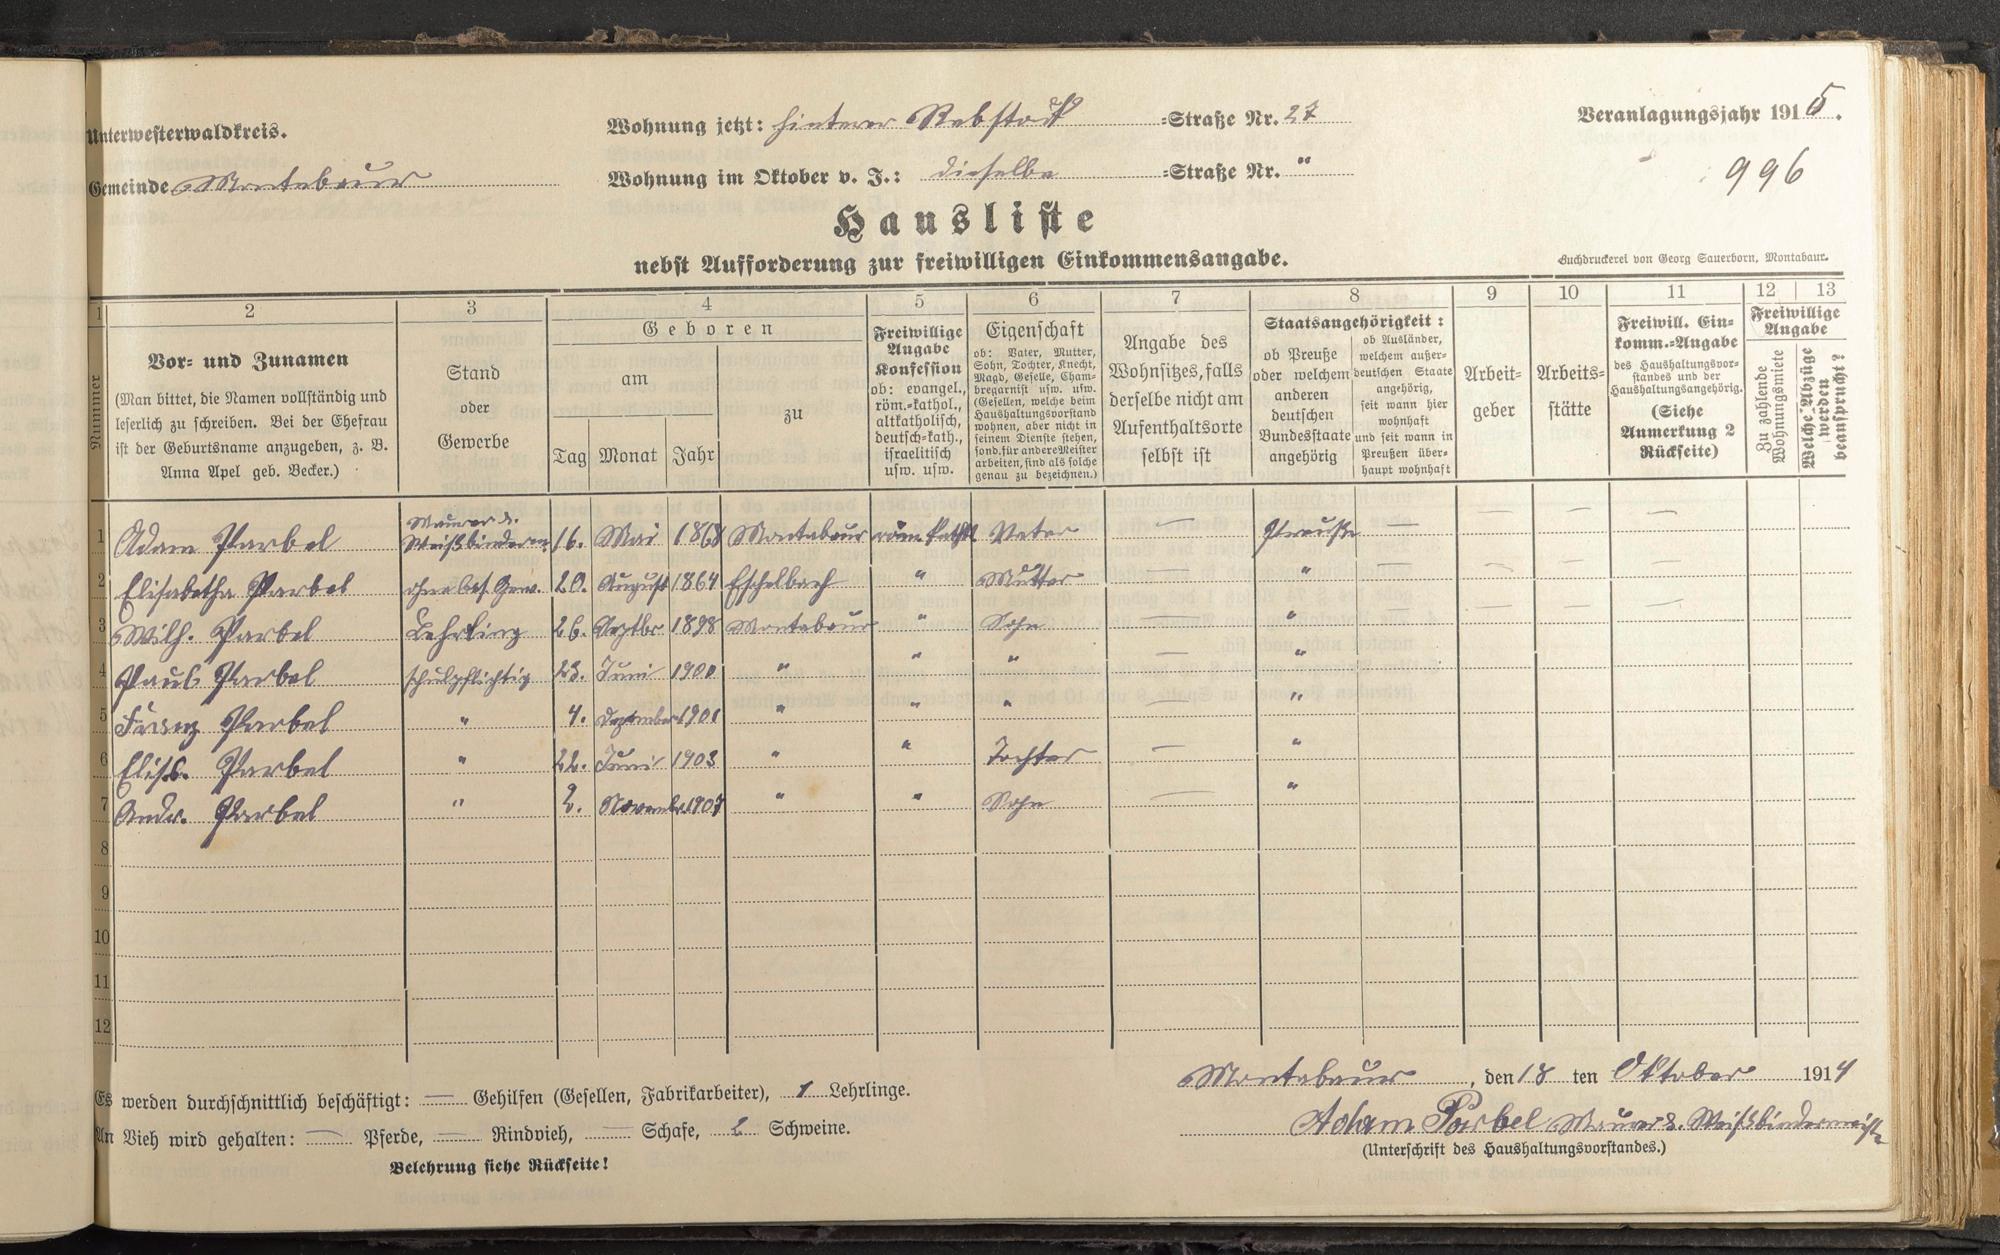 Unterwesterwaldkreis.
Gemeinde Montabaur
Wohnung jetzt: hinterer Rebstock =Straße Nr. 27
Wohnung im Oktober v. J.: dieselbe =Straße Nr. "
Veranlagungsjahr 1915.
996
Hausliste
nebst Aufforderung zur freiwilligen Einkommensangabe.
Buchdruckerei von Georg Sauerborn, Montabaur.
1 2 3 4 5 6 7 8 9 10 11 12 13
Nummer
Vor- und Zunamen
(Man bittet, die Namen vollständig und
leserlich zu schreiben. Bei der Ehefrau
ist der Geburtsname anzugeben, z. B.
Anna Apel geb. Becker.)
Stand
oder
Gewerbe
Geboren
am
Tag Monat Jahr
zu
Freiwillige
Angabe
Konfession
ob: evangel.,
röm.-kathol.,
altkatholisch,
deutsch-kath.,
israelitisch
usw. usw.
Eigenschaft
ob: Vater, Mutter,
Sohn, Tochter, Knecht,
Magd, Geselle, Cham-
bregarnist usw. usw.
(Gesellen, welche beim
Haushaltungsvorstand
wohnen, aber nicht in
seinem Dienste stehen,
sond. für andere Meister
arbeiten, sind als solche
genau zu bezeichnen.)
Angabe des
Wohnsitzes, falls
derselbe nicht am
Aufenthaltsorte
selbst ist
Staatsangehörigkeit:
ob Preuße
oder welchem
anderen
deutschen
Bundesstaate
angehörig
ob Ausländer,
welchem außer-
deutschen Staate
angehörig,
seit wann hier
wohnhaft
und seit wann in
Preußen über-
haupt wohnhaft
Arbeit-
geber
Arbeits-
stätte
Freiwill. Ein-
komm.-Angabe
des Haushaltungsvor-
standes und der
Haushaltungsangehörig.
(Siehe
Anmerkung 2
Rückseite)
Freiwillige
Angabe
Zu zahlende
Wohnungsmiete
Welche Abzüge
werden
beansprucht?
1 Adam Parbel Maurer u. Weißbinderm. 16. Mai 1868 Montabaur röm. kathol. Vater — Preuße — — — —
2 Elisabetha Parbel ohne bes. Gew. 20. August 1864 Eschelbach " Mutter — " — — — —
3 Wilh. Parbel Lehrling 26. Septbr 1898 Montabaur " Sohn — " — — — —
4 Paul Parbel schulpflichtig 23. Juni 1900 " " " — "
5 Franz Parbel " 4. Dezember 1901 " " " — "
6 Elis. Parbel " 22. Juni 1903 " " Tochter — "
7 Andr. Parbel " 2. November 1907 " " Sohn — "
8
9
10
11
12
Es werden durchschnittlich beschäftigt: — Gehilfen (Gesellen, Fabrikarbeiter), 1 Lehrlinge.
An Vieh wird gehalten: — Pferde, — Rindvieh, — Schafe, 2 Schweine.
Belehrung siehe Rückseite!
Montabaur, den 18 ten Oktober 1914
Adam Parbel Maurer u. Weißbindermeister
(Unterschrift des Haushaltungsvorstandes.)